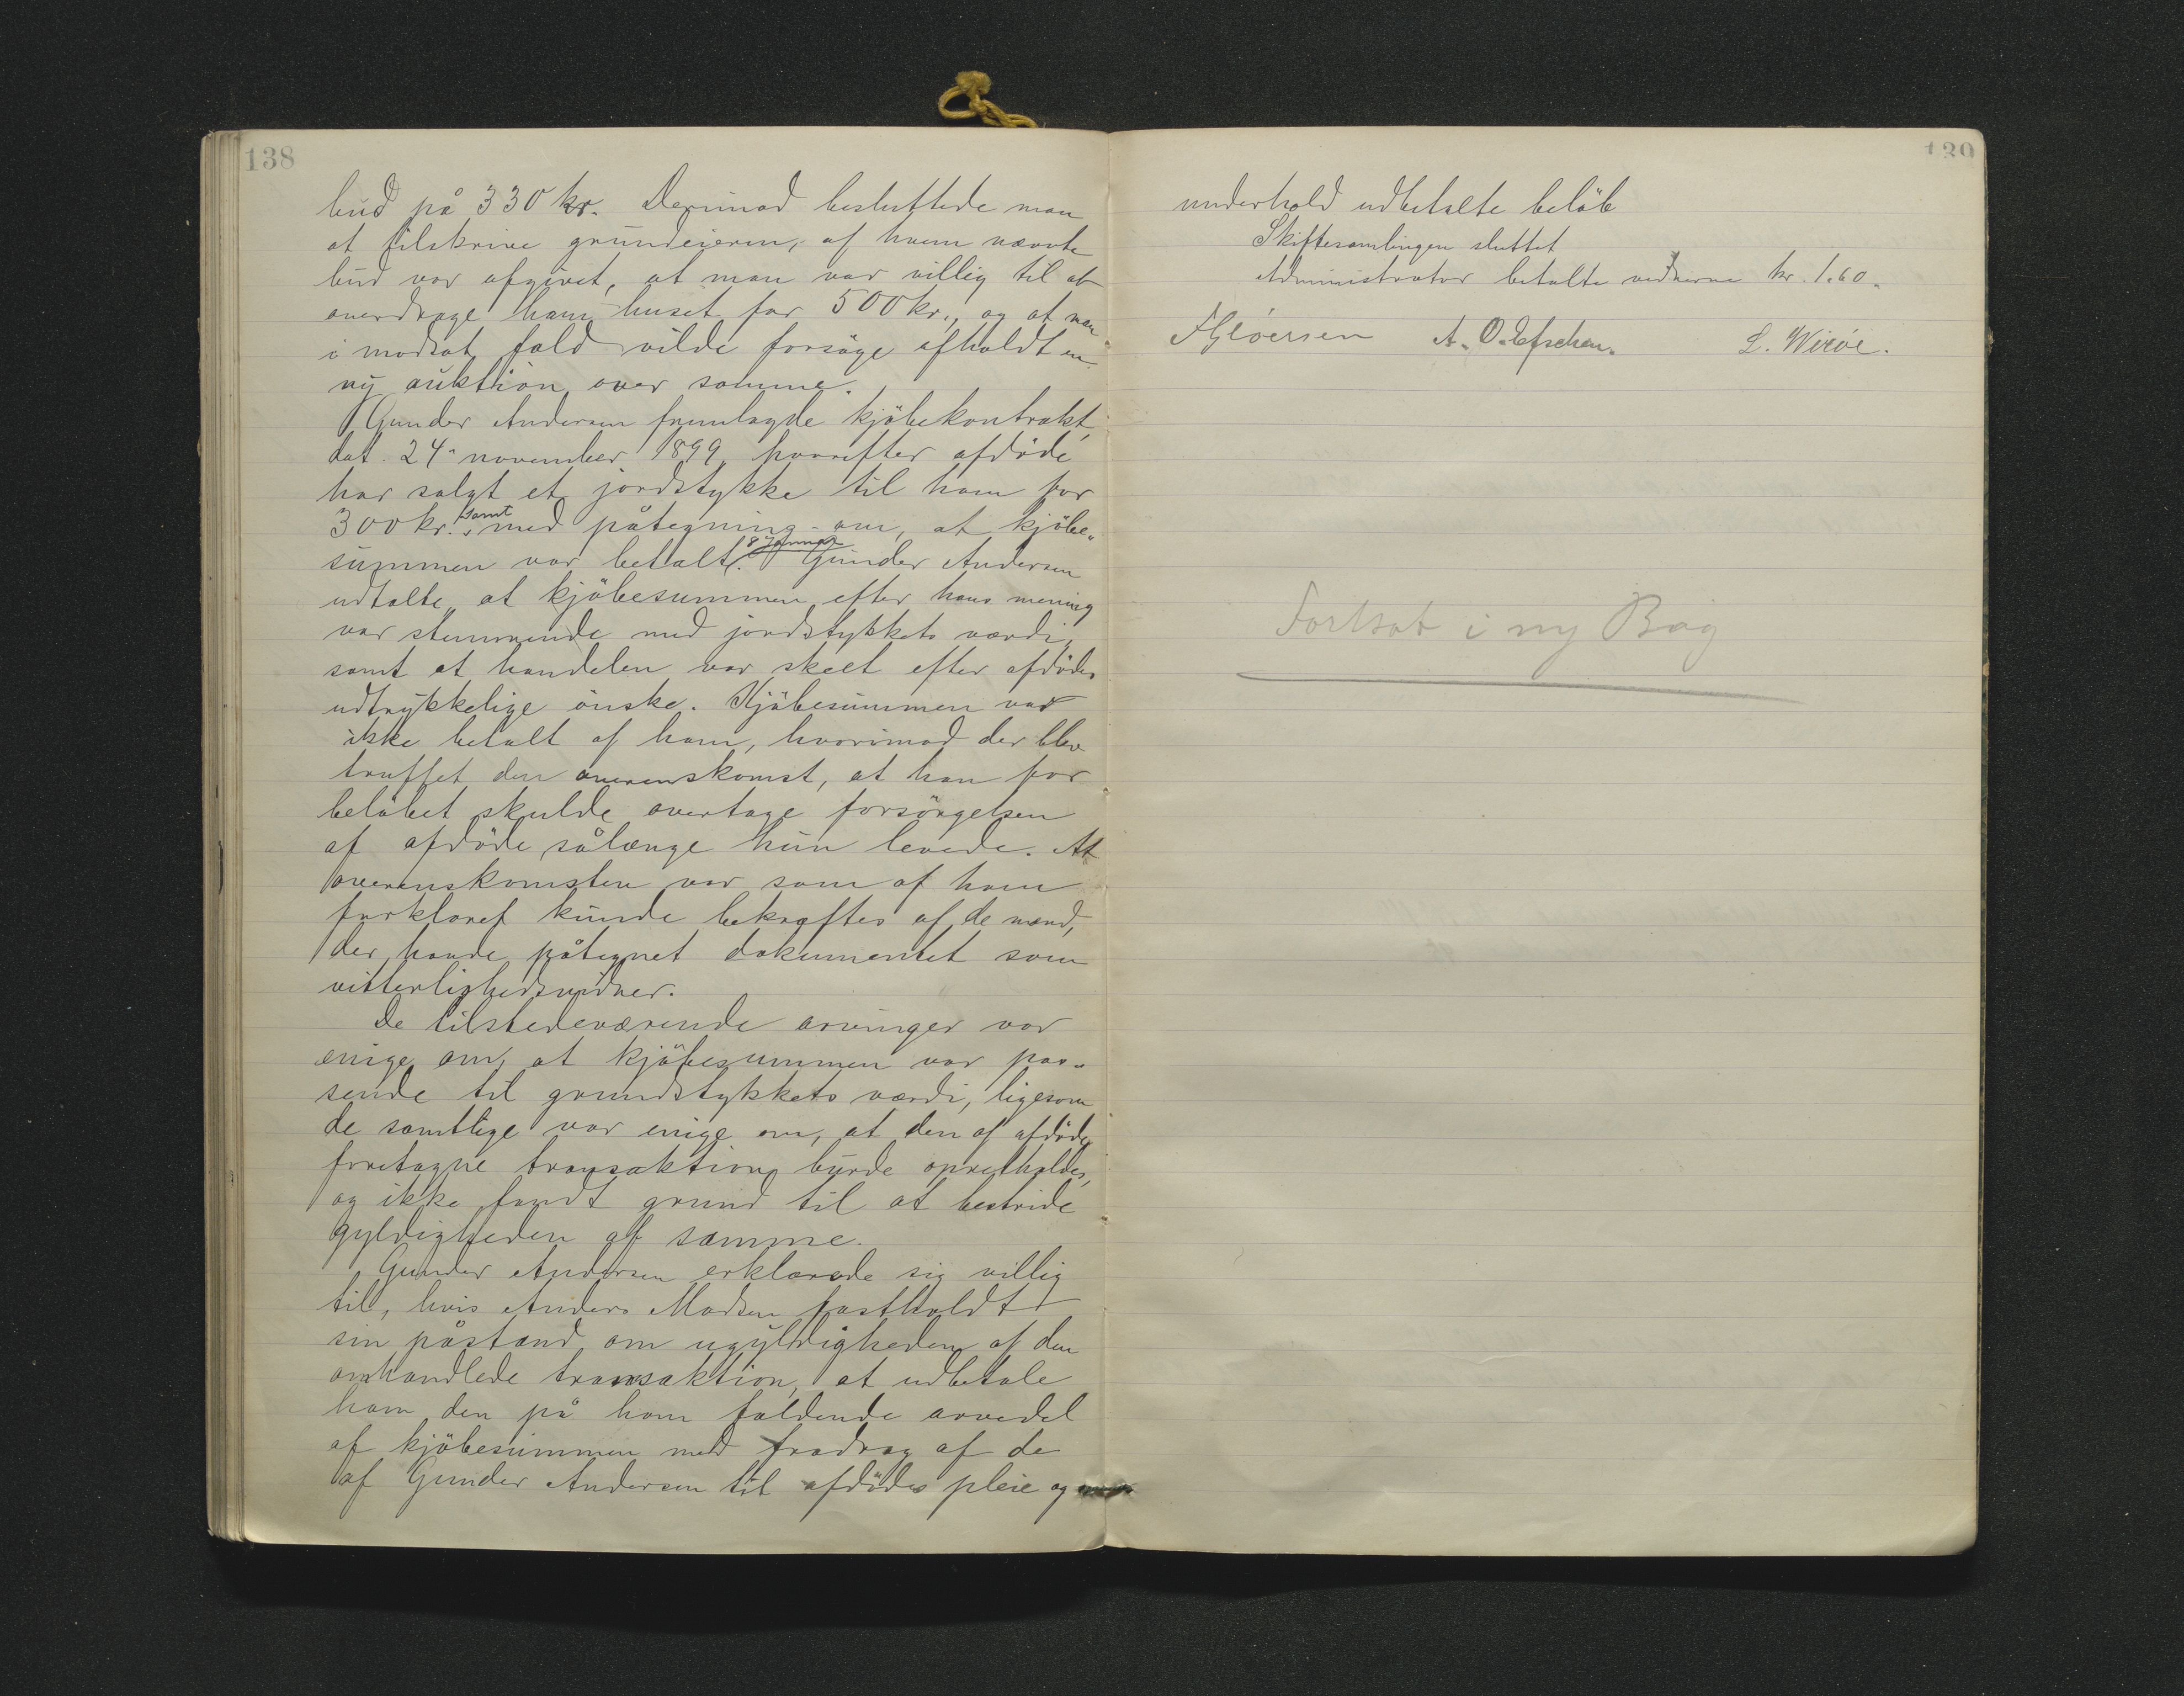 138
bud på 330 kr. Derimod besluttede man
at tilskrive grundeieren, af hvem nævnte
bud var afgivet, at man var villig til at
overdrage ham huset for 500 kr., og at man
i modsat fald vilde forsøge afholdt en
ny auktion over samme.
Gunder Andersen fremlagde kjöbekontrakt,
dat. 24 november 1899, hvorefter afdöde
har solgt et jordstykke til ham for
300 kr. samt med påtegning om, at kjöbe-
summen var betalt 8 Januar. Gunder Andersen
udtalte, at kjöbesummen efter hans mening
var stemmende med jordstykkets værdi,
samt at handelen var skeet efter afdödes
udtrykkelige önske. Kjöbesummen var
ikke betalt af ham, hvorimod der blev
truffet den overenskomst, at han for
belöbet skulde overtage forsörgelsen
af afdöde sålænge hun levede. At
overenskomsten var som af ham
forklaret kunde bekræftes af de mænd,
der havde påtegnet dokumentet som
vitterlighedsvidner.
De tilstedeværende arvinger var
enige om, at kjöbesummen var pas-
sende til grundstykkets værdi, ligesom
de samtlige var enige om, at den af afdöde
foretagne transaktion burde opretholdes,
og ikke fandt grund til at bestride
gyldigheden af samme.
Gunder Andersen erklærede sig villig
til, hvis Anders Madsen fastholdt
sin påstand om ugyldigheden af den
omhandlede transaktion, at udbetale
ham den på ham faldende arvedel
af kjöbesummen med fradrag af de
af Gunder Andersen til afdödes pleie og
139
underhold udbetalte belöb
Skiftesamlingen sluttet
Administrator betalte vidnerne kr. 1.60.
A. O. L. Wiröe.
Fortsat i ny Bog